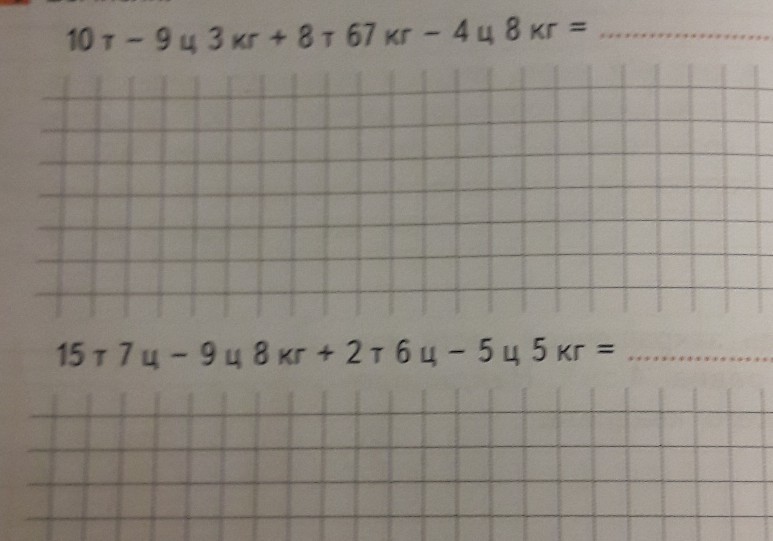 10 т − 9 ц 3 кг + 8 т 67 кг − 4 ц 8 кг = ....................
15 т 7 ц − 9 ц 8 кг + 2 т 6 ц − 5 ц 5 кг = ....................